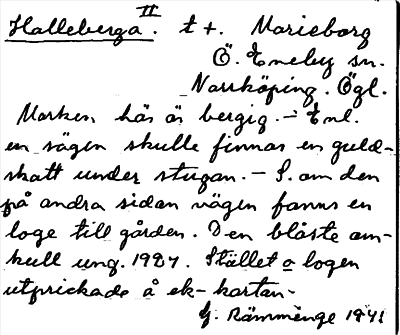 Halleberga II. t +. Marieborg
Ö. Eneby sn.
Norrköping. Ögl.
Marken här är bergig. - Enl.
en sägen skulle finnas en guld-
skatt under stugan. - S. om den
på andra sidan vägen fanns en
loge till gården. Den blåste om-
kull ung. 1927. Stället o logen
utprickade å ek-kartan.
G. Rämmenge 1941